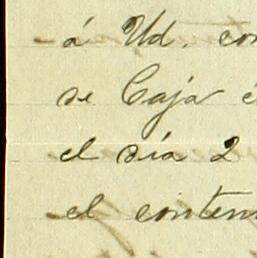 á Ud. con
se Caja é
el día 2
el conten